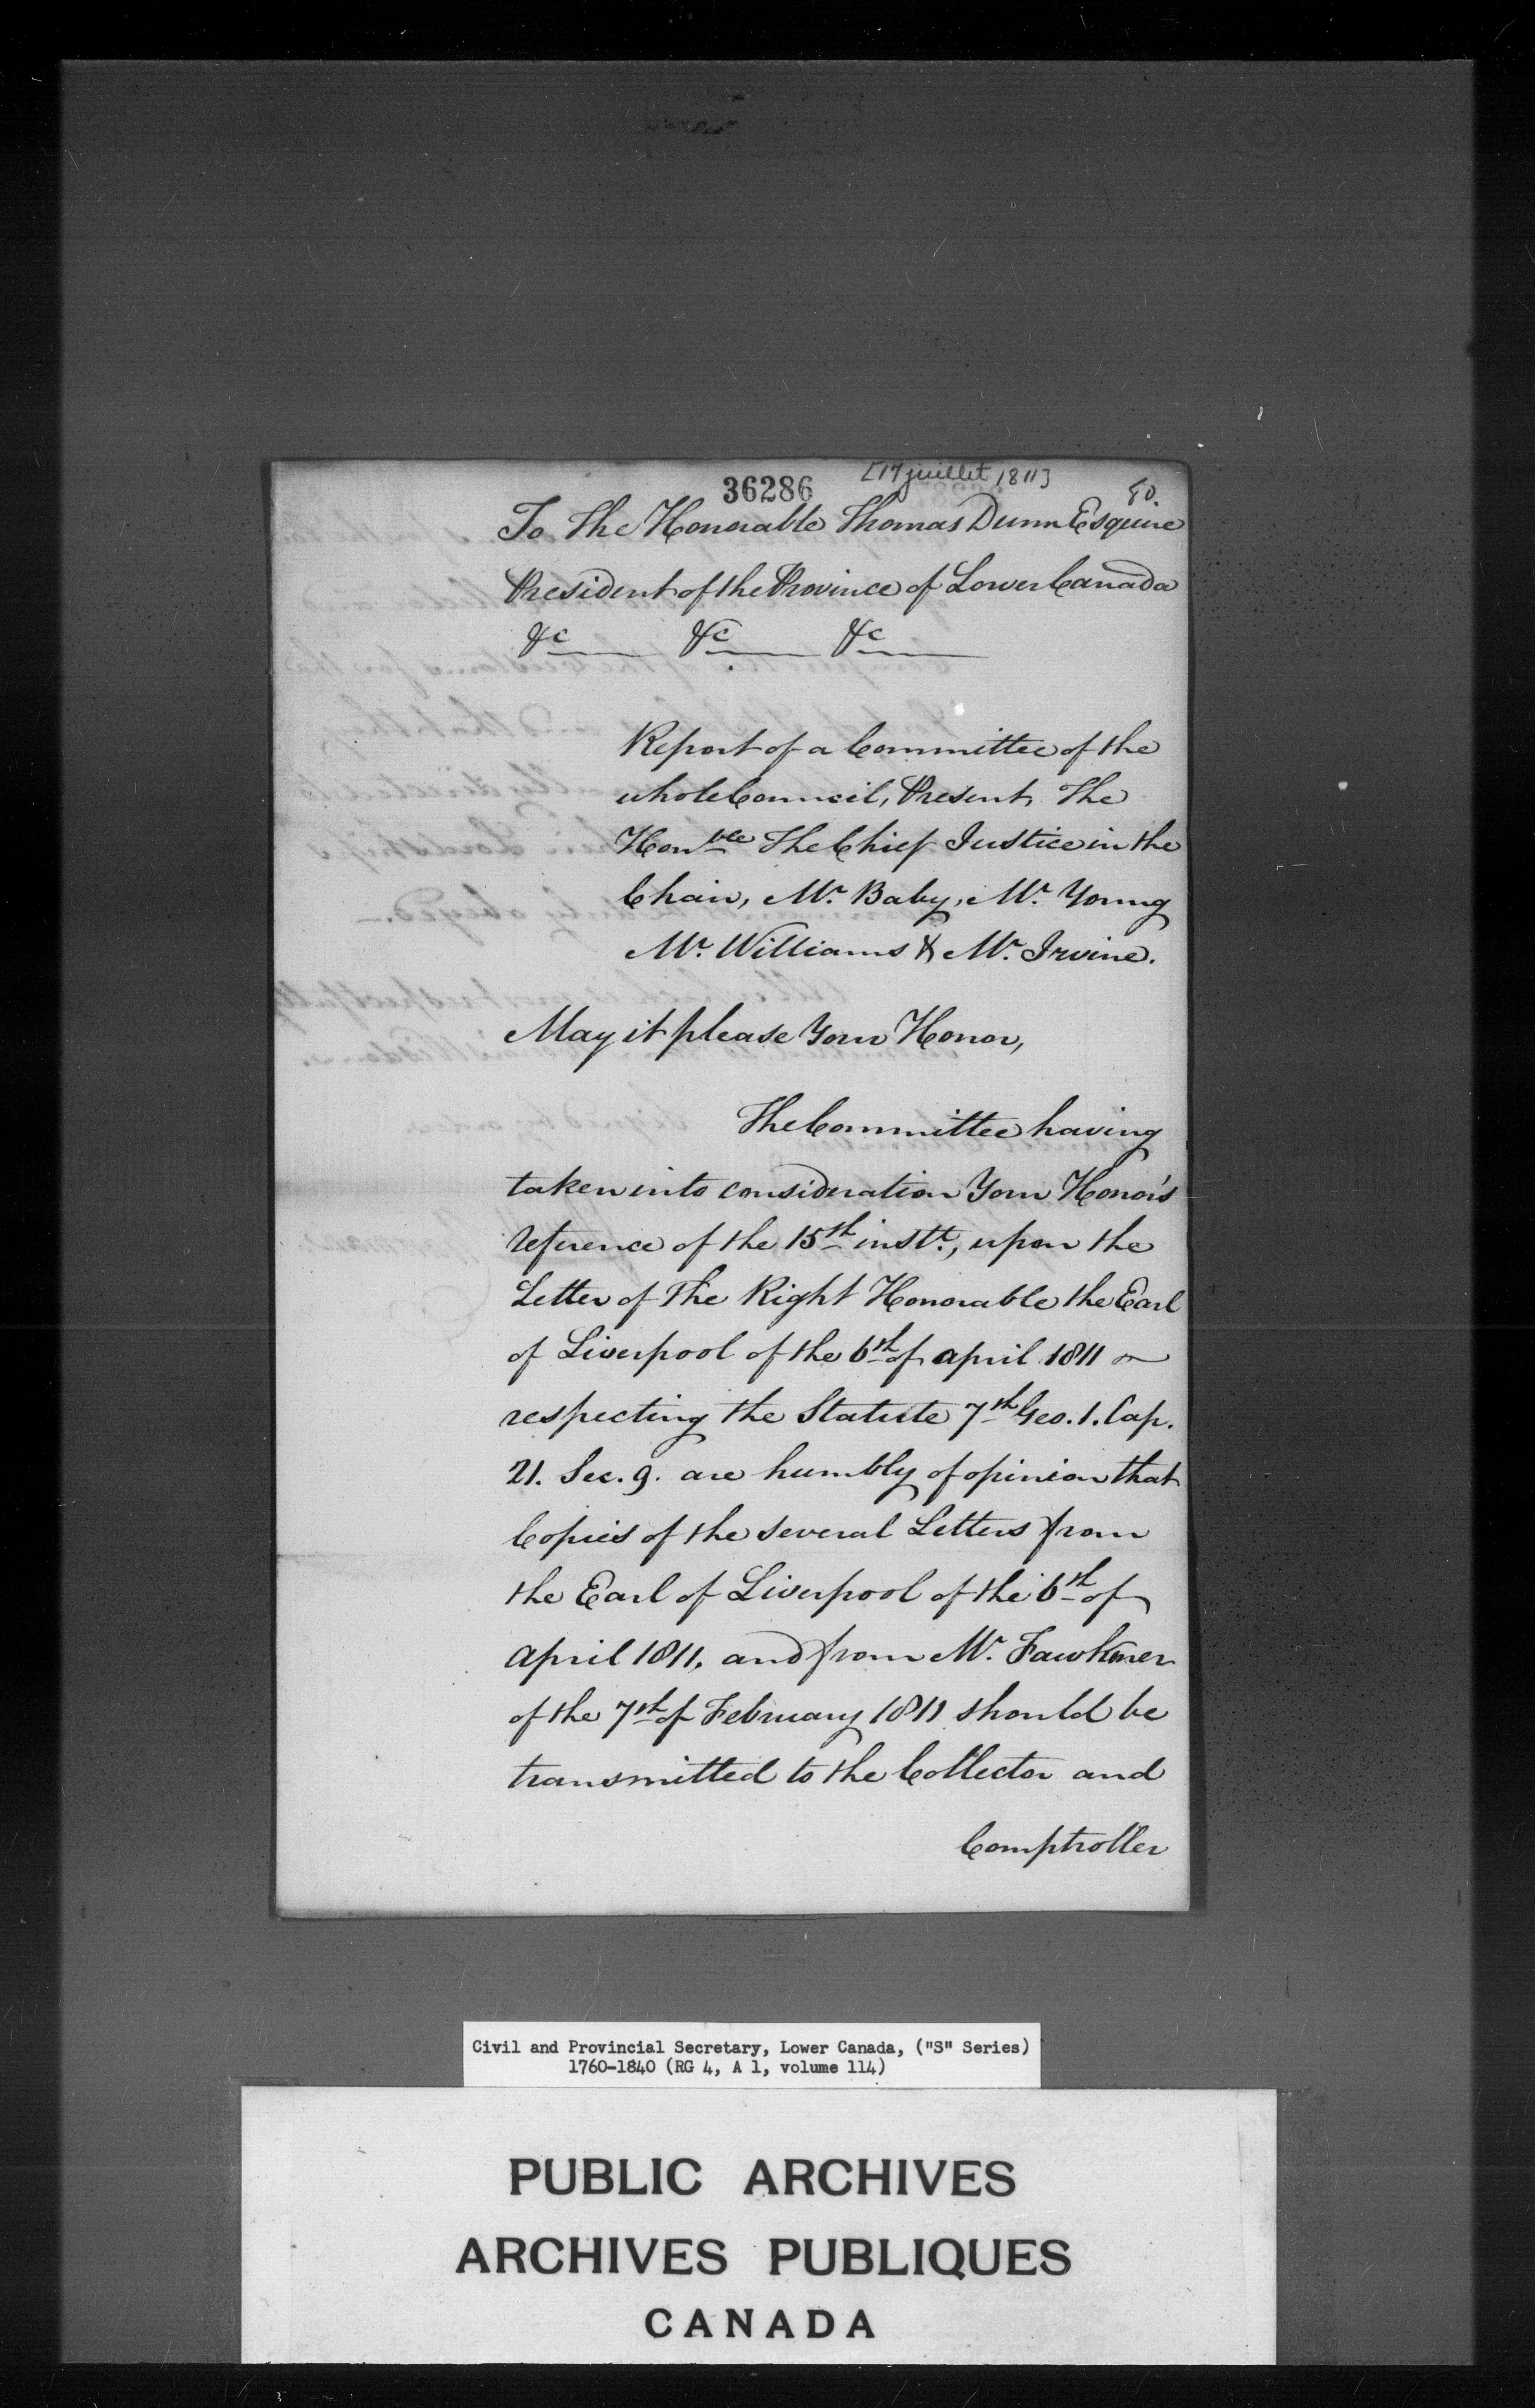 36286
[17 juillet 1811]
80.
To The Honorable Thomas Dunn Esquire
President of the Province of Lower Canada
&c &c &c
Report of a Committee of the
whole Council, Present, The
Honble The Chief Justice in the
Chair, Mr. Baby, Mr. Young
Mr. Williams & Mr. Irvine.
May it please Your Honor,
The Committee having
taken into consideration Your Honor's
reference of the 15th instt., upon the
Letter of The Right Honorable the Earl
of Liverpool of the 6th of april 1811
respecting the Statute 7th Geo. 1. Cap.
21. Sec. 9. are humbly of opinion that
Copies of the several Letters from
the Earl of Liverpool of the 6th of
april 1811, and from Mr. Fawkener
of the 7th of February 1811 should be
transmitted to the Collector and
Comptroller
Civil and Provincial Secretary, Lower Canada, ("S" Series)
1760-1840 (RG 4, A 1, volume 114)
PUBLIC ARCHIVES
ARCHIVES PUBLIQUES
CANADA